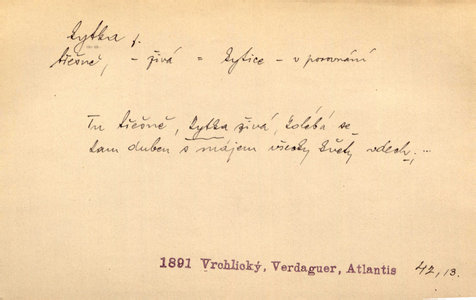 kytka f.
třešně, - živá = kytice - v porovnání
Tu třešně, kytka živá, kdébá se
kam duben s májem všecky květy vdech, ...
1891 Vrchlický, Verdaguer, Atlantis 42, 13.